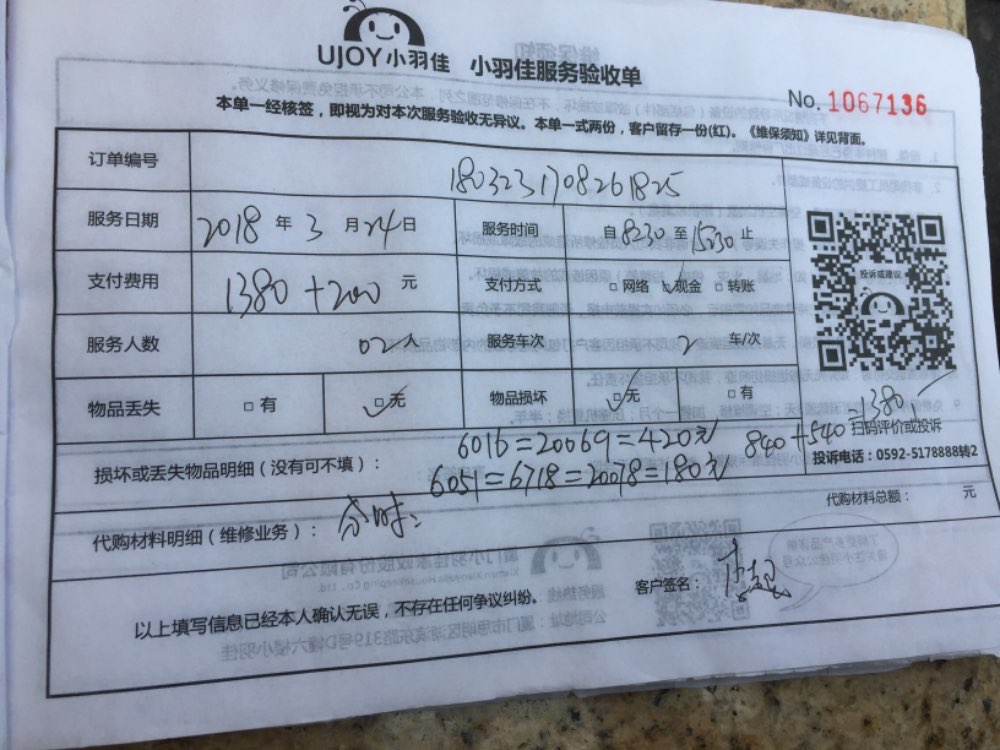 UJOY小羽佳 小羽佳服务验收单
No. 1067136
本单一经核签，即视为对本次服务验收无异议。本单一式两份，客户留存一份(红)。《维保须知》详见背面。
订单编号 1803231708261825
服务日期 2018 年 3 月 24 日 服务时间 自 8:30 至 15:30 止
支付费用 1380+200 元 支付方式 □ 网络 ☑ 现金 □ 转账
投诉或建议
服务人数 02人 服务车次 2 车/次
物品丢失 □ 有 ☑ 无 物品损坏 ☑ 无 □ 有
6016=20069=420元 840+540=1380.-
扫码评价或投诉
损坏或丢失物品明细（没有可不填）： 6051=6718=20078=180元
投诉电话：0592-5178888转2
代购材料明细（维修业务）： 代购材料总额： 元
客户签名：
以上填写信息已经本人确认无误，不存在任何争议纠纷。